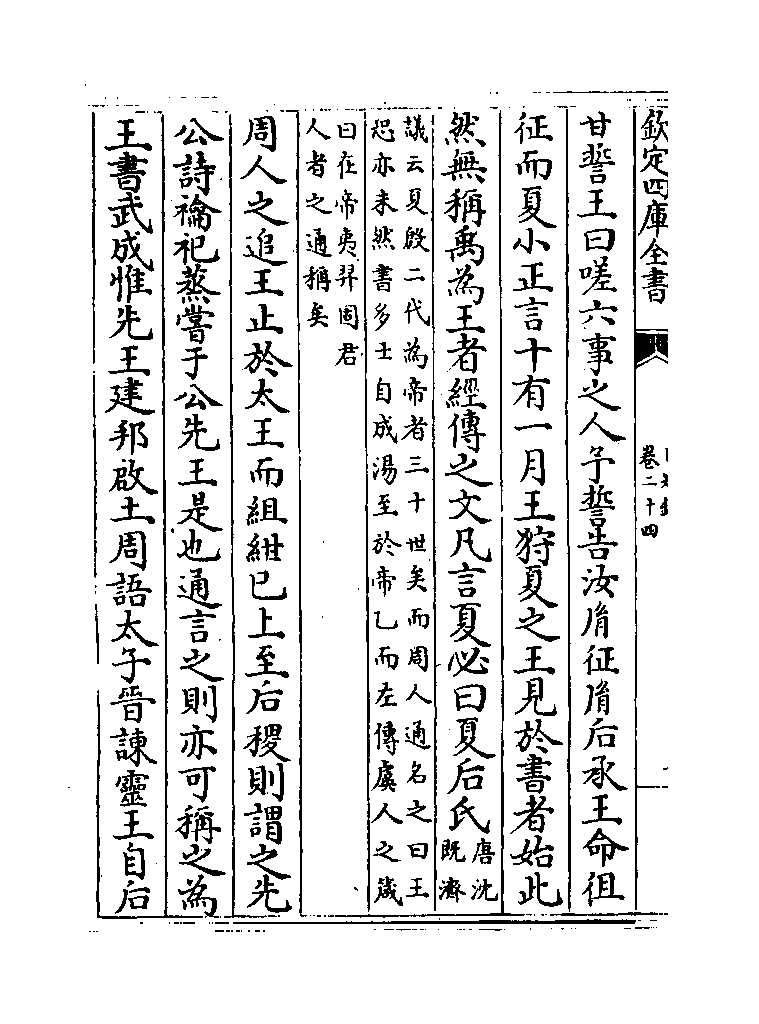 欽定四庫全書
卷二十四
甘誓王曰嗟六事之人予誓告汝胤征胤后承王命徂
征而夏小正言十有一月王狩夏之王見於書者始此
然無稱禹為王者經傳之文凡言夏必曰夏后氏唐沈既濟
議云夏殷二代為帝者三十世矣而周人通名之曰王
恐亦未然書多士自成湯至於帝乙而左傳虞人之箴
曰在帝夷羿固君
人者之通稱矣
周人之追王止於太王而組紺已上至后稷則謂之先
公詩禴祀蒸嘗于公先王是也通言之則亦可稱之為
王書武成惟先王建邦啟土周語太子晉諫靈王自后